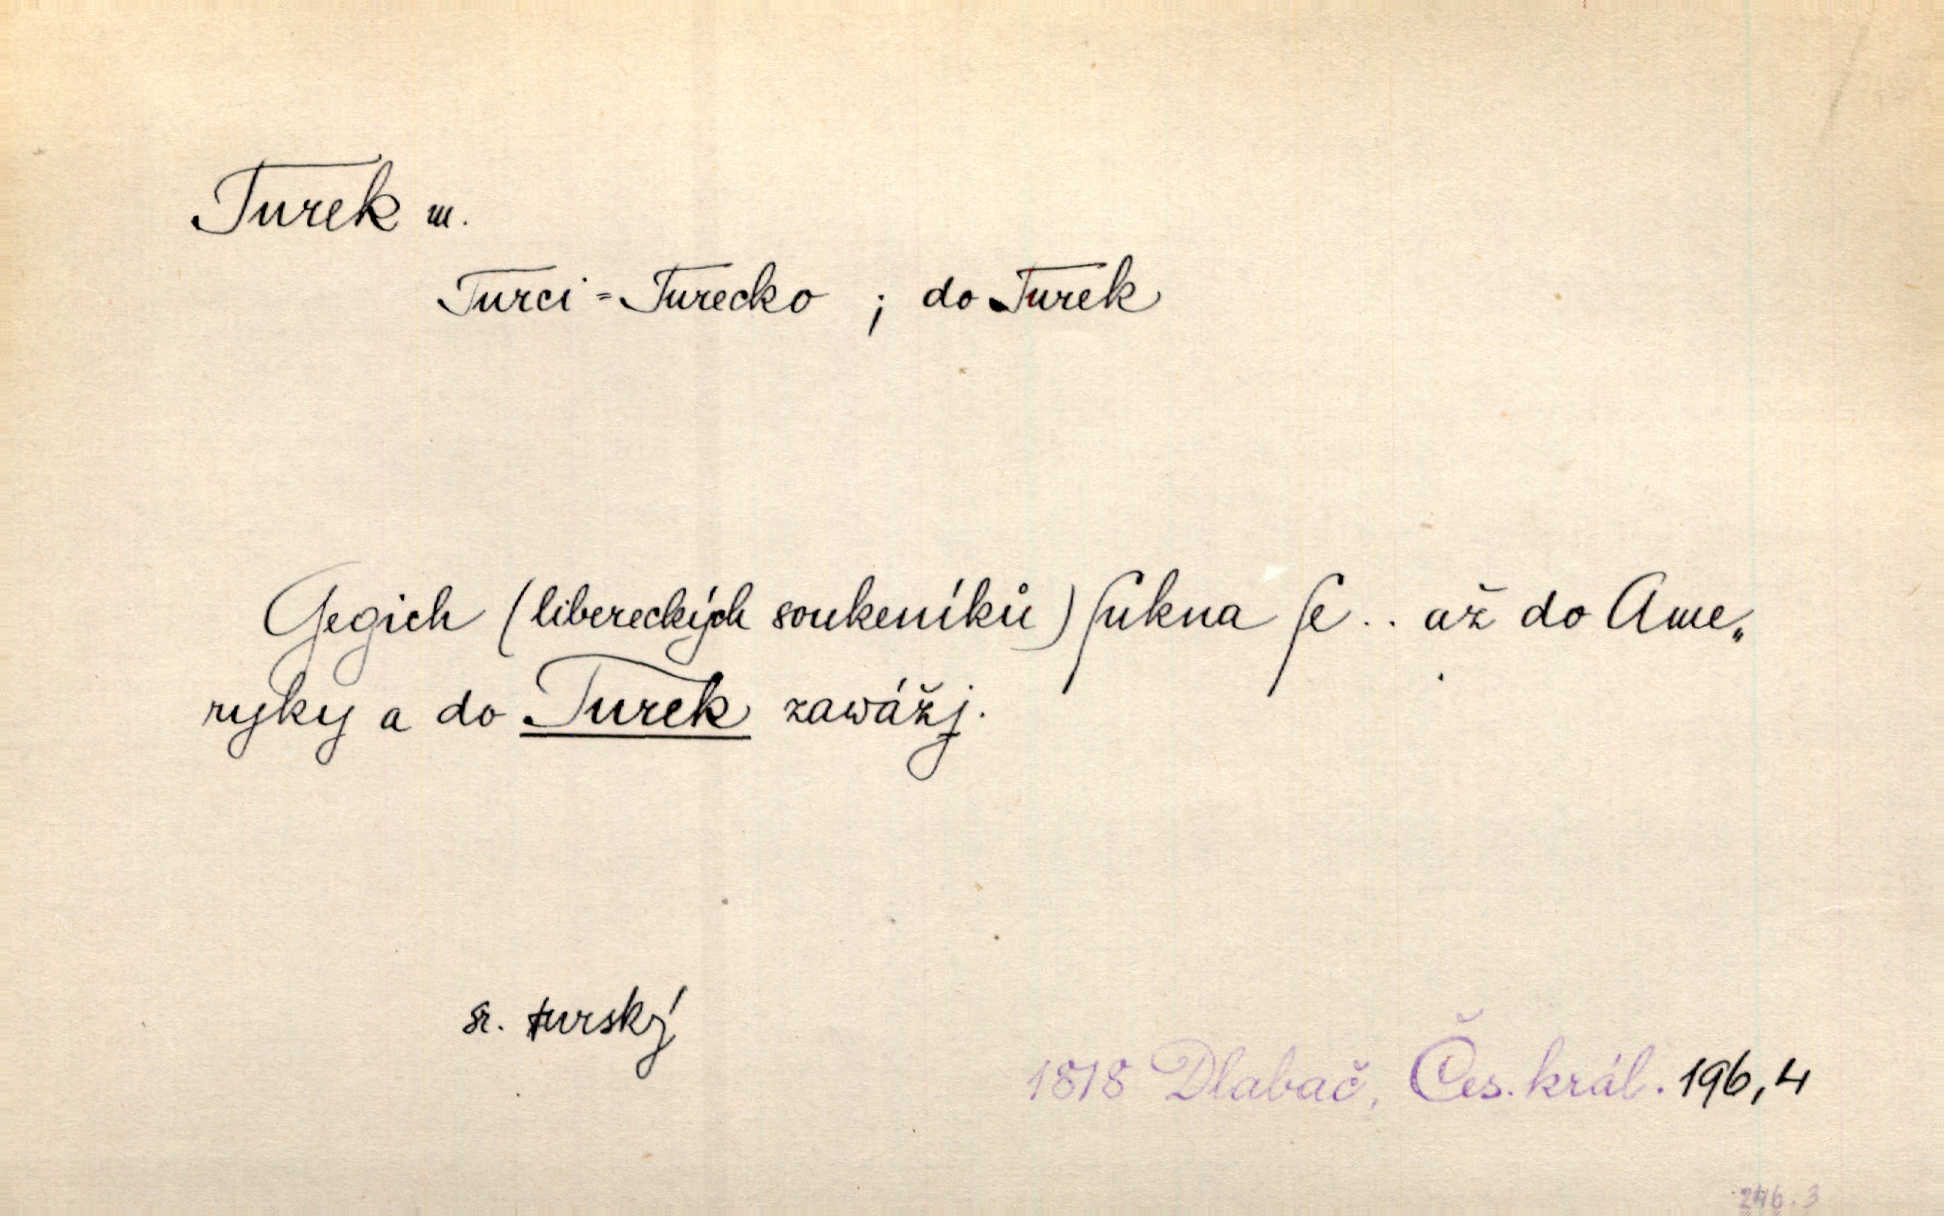 Turek m.
Turci = Turecko ; do Turek
Gegich (libereckých soukeníků) ſukna ſe .. až do Ame„
ryky a do Turek zawážj.
sr. turský
1818 Dlabač, Čes. král. 196,4
246.3